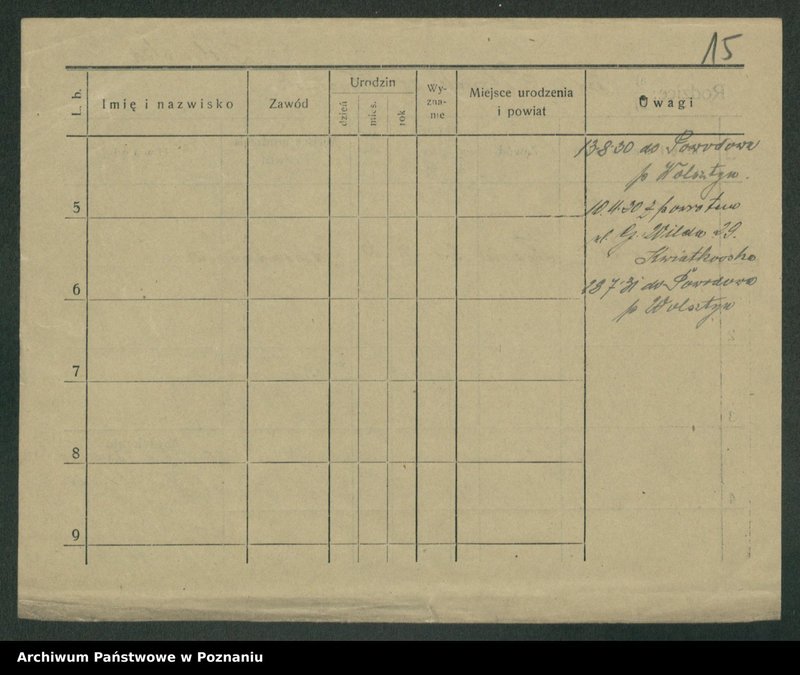 15
L. b.
Imię i nazwisko
Zawód
Urodzin
dzień
mies.
rok
Wy-
zna-
nie
Miejsce urodzenia
i powiat
Uwagi
13.8.30 do Powodowa
p Wolsztyn.
5
10.4.30 z powrotem
Wilda 29.
6
28.7.31 do Powodowa
p Wolsztyn
7
8
9
Archiwum Państwowe w Poznaniu